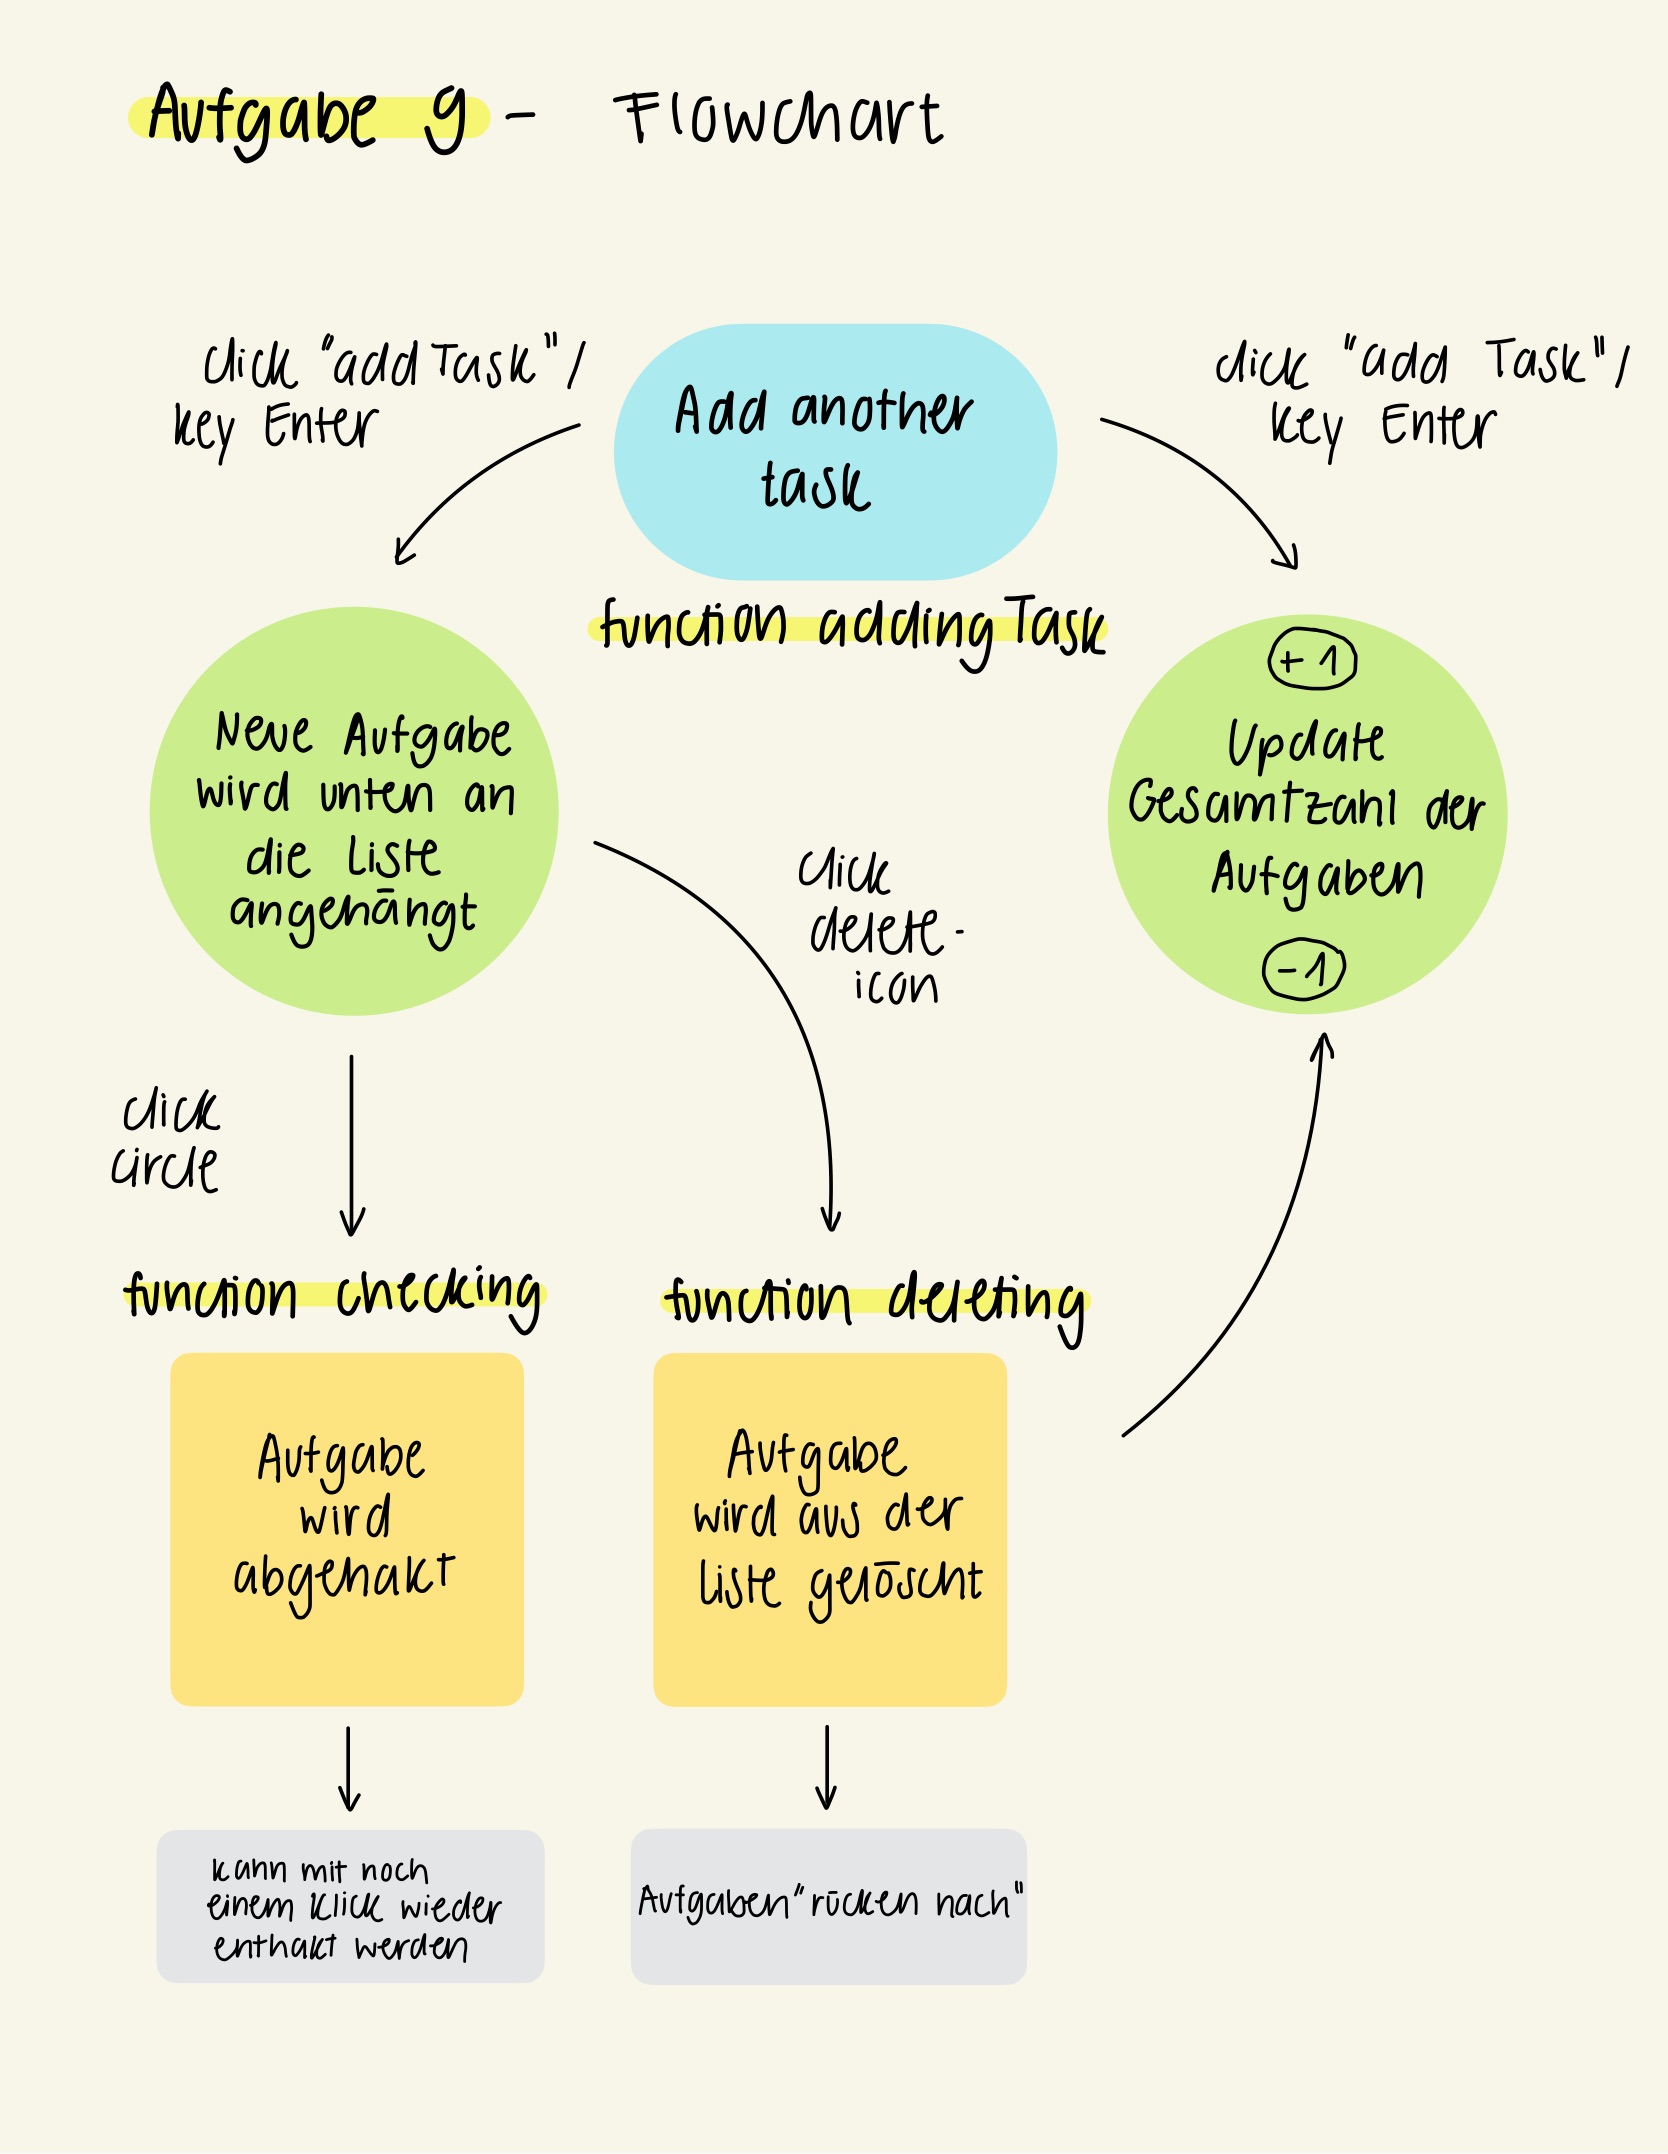 Aufgabe 9 - Flowchart
click "add Task" /
key Enter
Add another
task
click "add Task" /
key Enter
function adding Task
Neue Aufgabe
wird unten an
die Liste
angehängt
+ 1
Update
Gesamtzahl der
Aufgaben
- 1
click
delete-
icon
click
circle
function checking
function deleting
Aufgabe
wird
abgehakt
Aufgabe
wird aus der
Liste gelöscht
kann mit noch
einem Klick wieder
enthakt werden
Aufgaben "rücken nach"